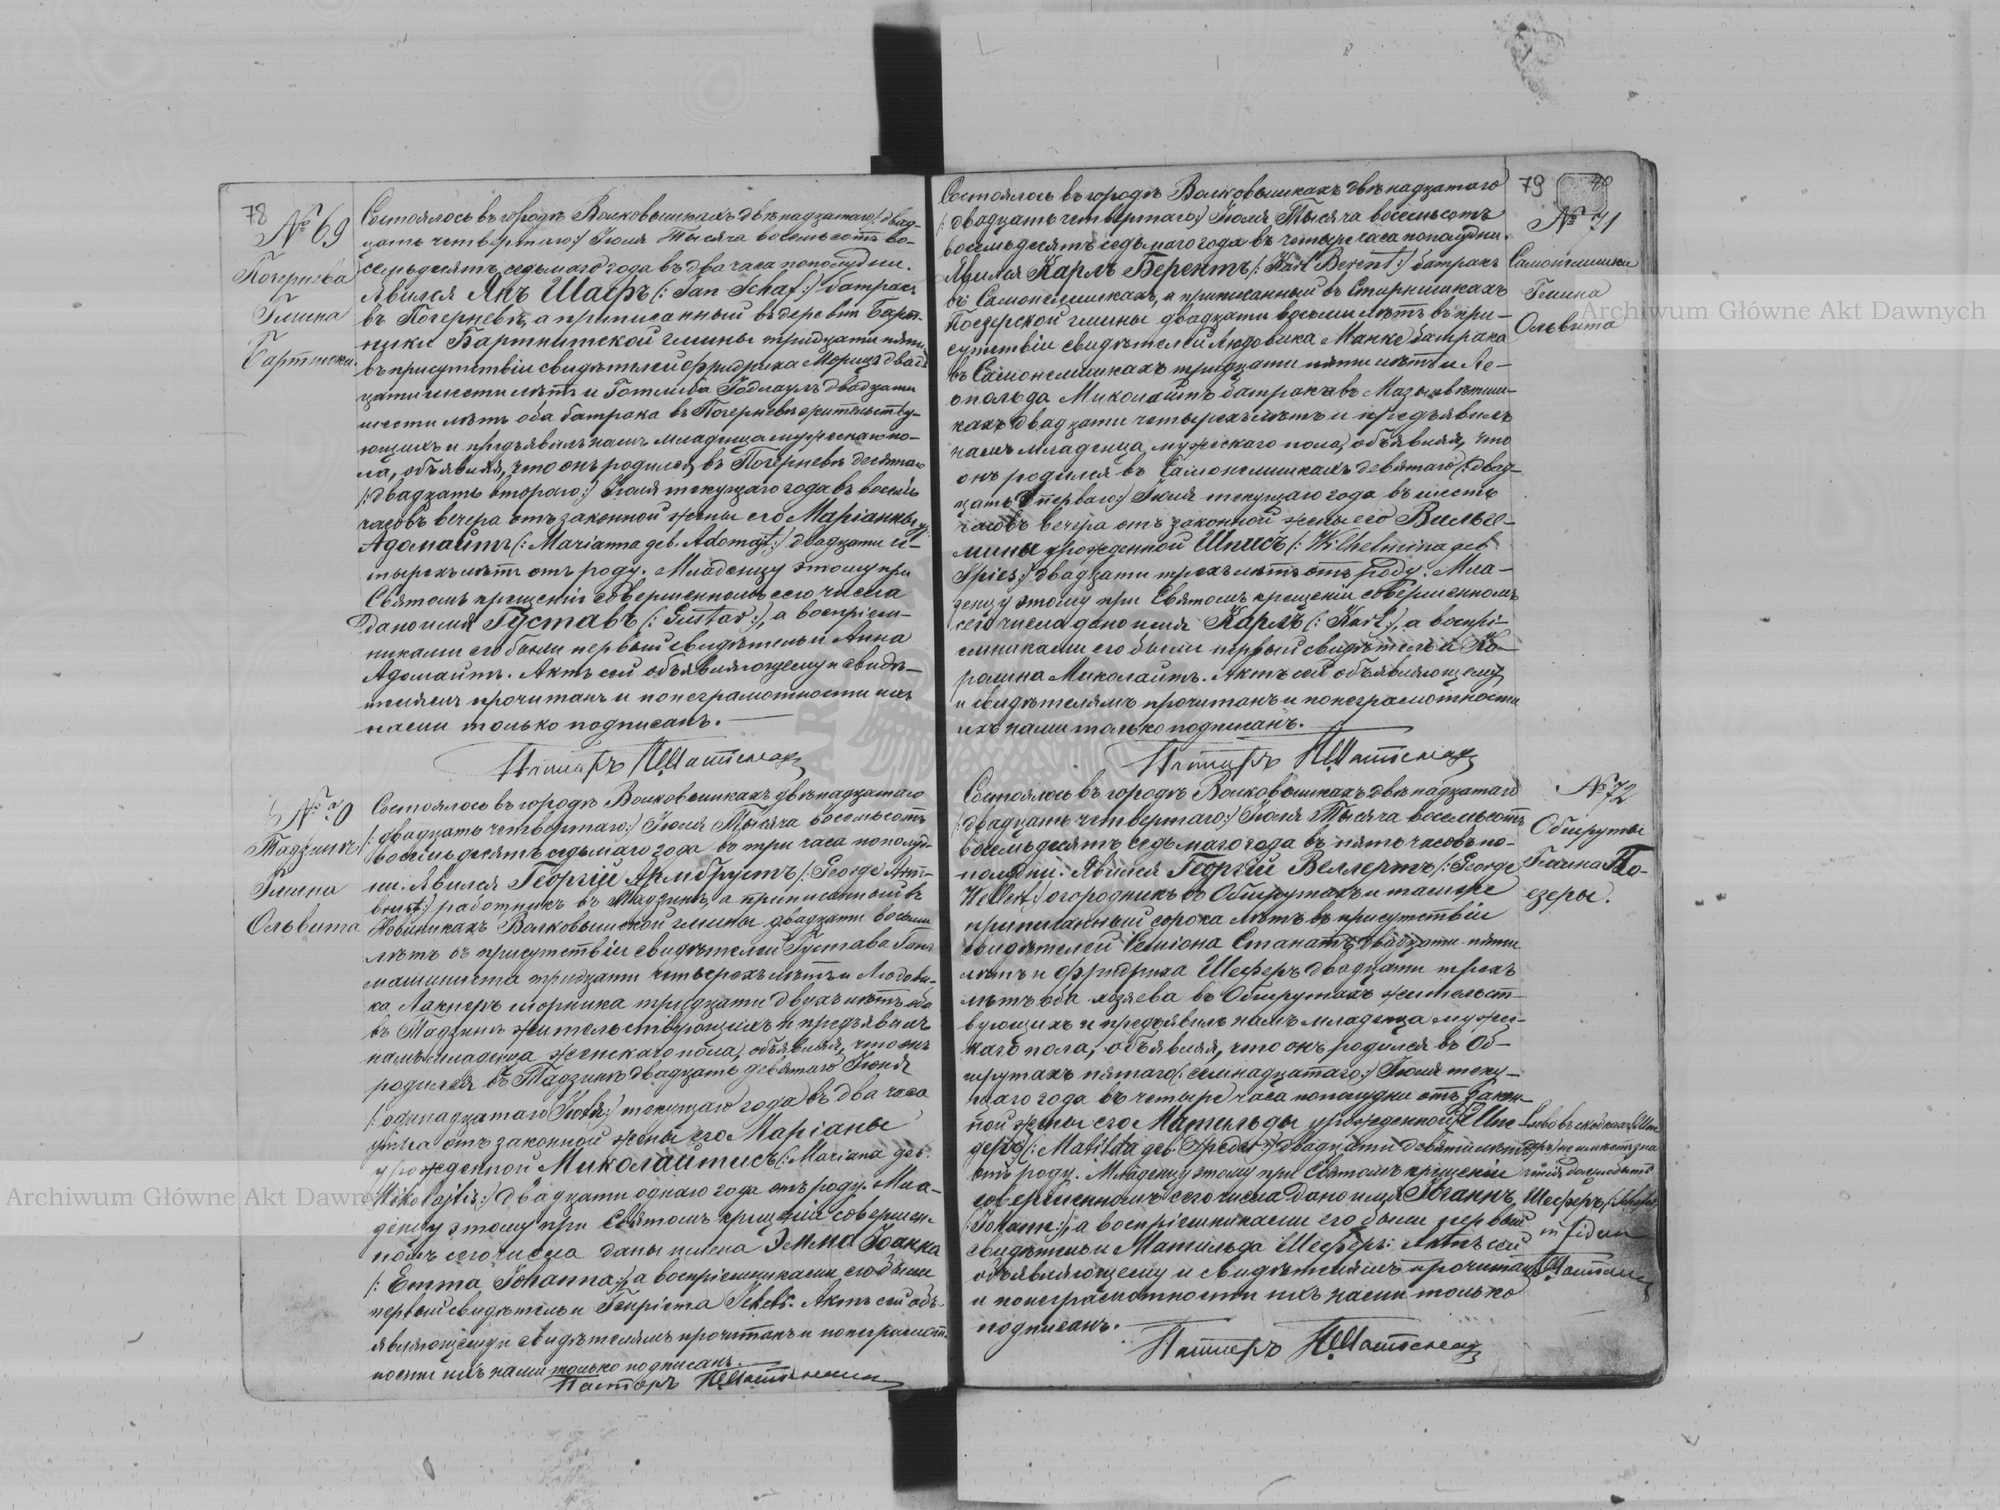 78
№ 69
Погернева
Гмина
Бартники
Состоялось въ городѣ Волковышкахъ двѣнадцатаго /: двад-
цать четвертаго :/ Іюля Тысяча восемьсотъ во-
семьдесятъ седьмаго года въ два часа пополудни.
Явился Янъ Шафъ (: Jan Schaf :) батракъ
въ Погерневѣ, а приписанный въ деревни Барт-
ники Бартнитской гмины тридцати пяти
въ присутствіи свидѣтелей Фридриха Морицъ двад-
цати шести лѣтъ и Готлиба двадцати
шести лѣтъ оба батрака въ Погерневѣ жительству-
ющихъ и предъявилъ намъ младенца мужескаго по-
ла, объявляя, что онъ родился въ Погерневѣ десятаго
/: двадцать втораго :/ Іюля текущаго года въ восемь
часовъ вечера отъ законной жены его Маріанны ур.
Адомайтъ (: Marianna geb. Adomajt :) двадцати че-
тырехъ лѣтъ отъ роду. Младенцу этому при
Святомъ крещеніи совершенномъ сего числа
дано имя Густавъ (: Gustav :), а воспріем-
никами его были первый свидѣтель и Анна
Адомайтъ. Актъ сей объявляющему и свидѣ-
телямъ прочитанъ и понеграмотности ихъ
нами только подписанъ.
Пасторъ
№ 70
Тадзинъ
Гмина
Ольвита
Состоялось въ городѣ Волковышкахъ двѣнадцатаго
/: двадцать четвертаго :/ Іюля Тысяча восемьсотъ
восемьдесятъ седьмаго года въ три часа пополуд-
ни. Явился Георгій Армбрустъ (: George Arm-
brust :) работникъ въ Тадзинѣ, а приписанный въ
Новиникахъ Волковышской гмины двадцати восьми
лѣтъ въ присутствіи свидѣтелей Густава
машиниста тридцати четырехъ лѣтъ и Людови-
ка Лакнеръ шорника тридцати двухъ лѣтъ оба
въ Тадзинѣ жительствующихъ и предъявилъ
намъ младенца женскаго пола, объявляя, что онъ
родился въ Тадзинѣ двадцать девятаго Іюня
/: одинадцатаго Іюля :/ текущаго года въ два часа
утра отъ законной жены его Маріаны
урожденной Миколайтисъ (: Mariana geb.
Mikolajtis :) двадцати однаго года отъ роду. Мла-
денцу этому при Святомъ крещеніи совершен-
номъ сего числа даны имена Эмма Іоанна
/: Emma Johanna :/, а воспріемниками его были
первый свидѣтель и Генріета. Актъ сей объ-
являющему и свидѣтелямъ прочитанъ и понеграмот-
ности ихъ нами только подписанъ.
Пасторъ
79
№ 71
Самонелишки
Гмина
Ольвита
Состоялось въ городѣ Волковышкахъ двѣнадцатаго
/: двадцать четвертаго :/ Іюля Тысяча восемьсотъ
восемьдесятъ седьмаго года въ четыре часа пополудни.
Явился Карлъ Берентъ (: Karl Berent :) батракъ
въ Самонелишкахъ, а приписанный въ Старнишкахъ
Поезерской гмины двадцати восьми лѣтъ въ при-
сутствіи свидѣтелей Людовика Манке батрака
въ Самонелишкахъ тридцати пяти лѣтъ и Ле-
опольда Миколайтъ батрака въ
кахъ двадцати четырехъ лѣтъ и предъявилъ
намъ младенца мужескаго пола, объявляя, что
онъ родился въ Самонелишкахъ девятаго (: двад-
цать перваго :) Іюля текущаго года въ шесть
часовъ вечера отъ законной жены его Вильге-
мины урожденной Шписъ (: Wilhelmina geb.
Spies :) двадцати трехъ лѣтъ отъ роду. Мла-
денцу этому при Святомъ крещеніи совершенномъ
сего числа дано имя Карлъ (: Karl :), а воспрі-
емниками его были первый свидѣтель и Ка-
ролина Миколайтъ. Актъ сей объявляющему
и свидѣтелямъ прочитанъ и понеграмотности
ихъ нами только подписанъ.
Пасторъ
№ 72
Обшруты
Гмина По-
езеры.
Состоялось въ городѣ Волковышкахъ двѣнадцатаго
/: двадцать четвертаго :/ Іюля Тысяча восемьсотъ
восемьдесятъ седьмаго года въ пять часовъ по-
полудни. Явился Георгій Веллертъ (: George
Wellert :) огородникъ въ Обшрутахъ и тамже
приписанный сорока лѣтъ въ присутствіи
свидѣтелей Семіона Станатъ двадцати пяти
лѣтъ и Фридриха Шеферъ двадцати трехъ
лѣтъ оба хозяева въ Обшрутахъ жительст-
вующихъ и предъявилъ намъ младенца мужес-
каго пола, объявляя, что онъ родился въ Об-
шрутахъ пятаго (: семнадцатаго :) Іюля теку-
щаго года въ четыре часа пополудни отъ закон-
ной жены его Матильды урожденной
(: Matilda geb. :) двадцати девяти лѣтъ
отъ роду. Младенцу этому при Святомъ крещеніи
совершенномъ сего числа дано имя Іоганнъ
/: Johann :/, а воспріемниками его были первый
свидѣтель и Матильда Шеферъ. Актъ сей
объявляющему и свидѣтелямъ прочитанъ
и понеграмотности ихъ нами только
подписанъ.
Пасторъ
Шеферъ
in fidem
Archiwum Główne Akt Dawnych
Archiwum Główne Akt Dawnych